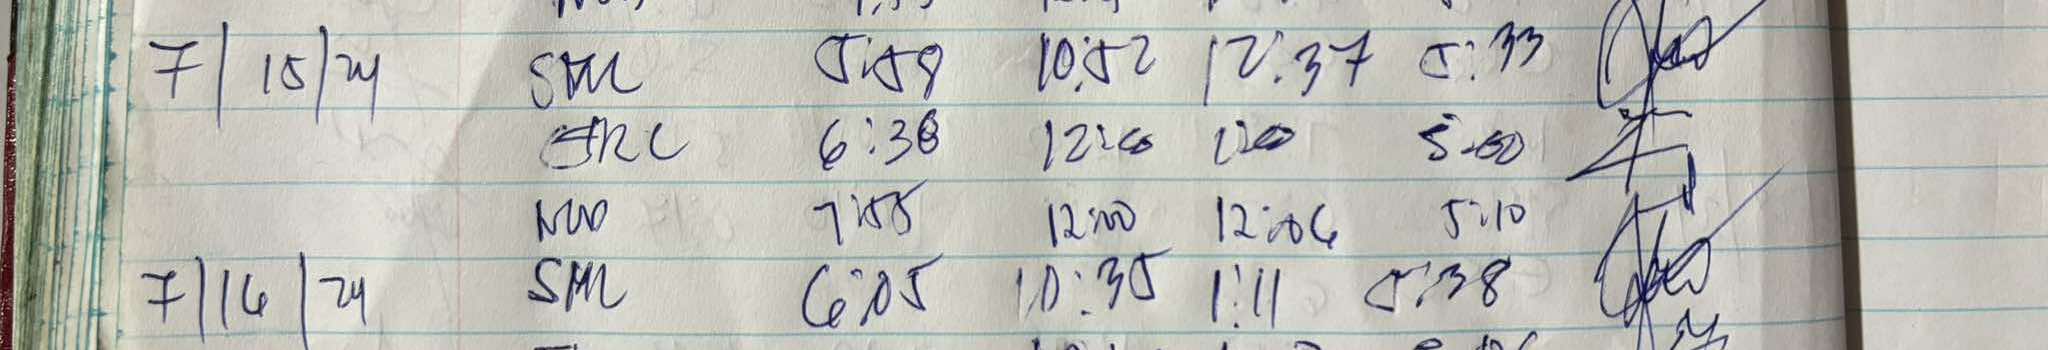 7/15/24 SML 5:59 10:52 12:37 5:33
6:38 12:00 1:00 5:00
7:55 12:00 12:06 5:10
7/16/24 SML 6:05 10:35 1:11 5:38